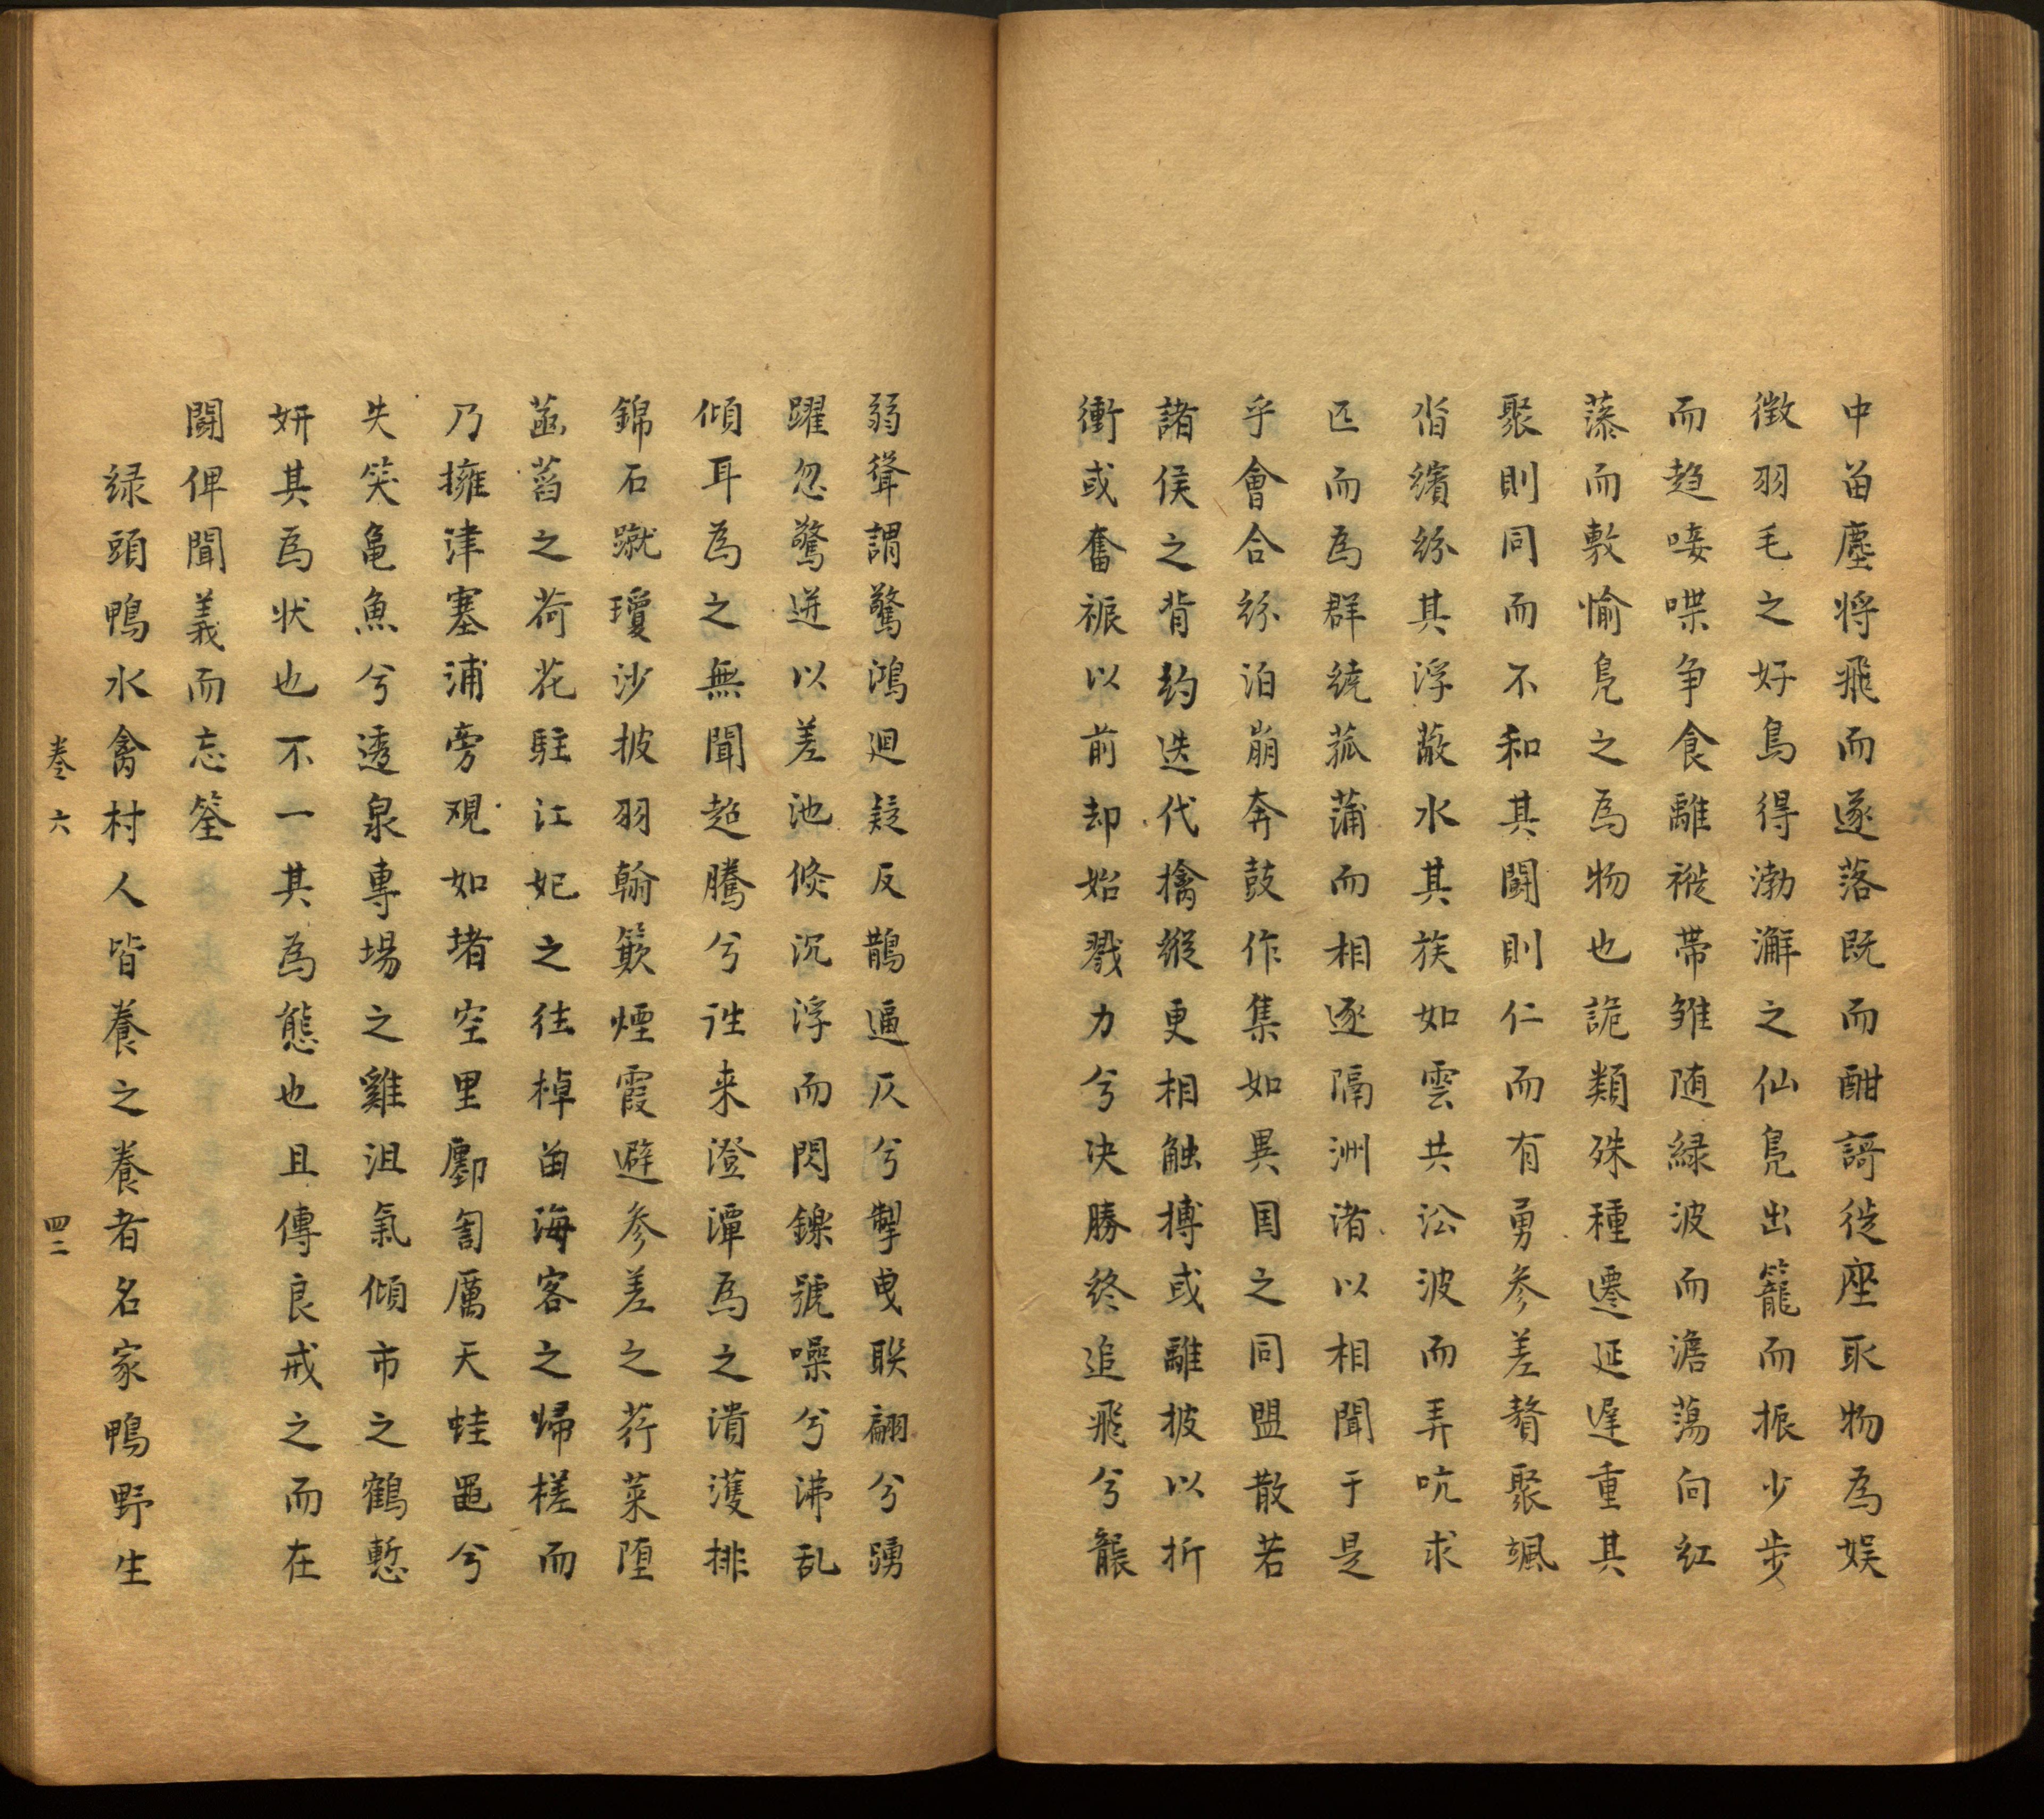 中留塵将飛而遂落既而酣謌徙座取物為娱
徵羽毛之好鳥得渤澥之仙凫出籠而振少步
而趋唼喋争食離褷帯雏随緑波而澹蕩向红
蕖而敷愉凫之為物也詭類殊種遷延遅重其
聚則同而不和其闘則仁而有勇参差聱聚飒
沓繽紛其浮蔽水其族如雲共㳂波而弄吭求
匹而為群繞菰蒲而相逐隔洲渚以相聞于是
乎會合紛泊崩奔鼓作集如異国之同盟散若
諸侯之背約迭代擒縦更相触搏或離披以折
衝或奮振以前却始戮力兮决勝終追飛兮襲
弱聳謂驚鴻廻疑反鵲逼仄兮掣曳联翩兮踴
躍忽驚迸以差池倏沉浮而閃鑠號噪兮沸乱
傾耳為之無聞超騰兮往来澄潭為之潰濩排
錦石蹴瓊沙披羽翰簸煙霞避参差之荇菜堕
菡萏之荷花駐江妃之往棹留海客之歸槎而
乃擁津塞浦旁观如堵空里鄽匌厲天蛙黽兮
失笑亀魚兮透泉專場之雞沮氣傾市之鶴慙
妍其為状也不一其為態也且傳良戒之而在
闘俾聞義而忘筌
緑頭鴨水禽村人皆養之養者名家鴨野生
卷六
四二